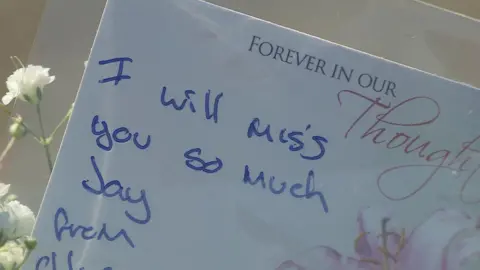 FOREVER IN OUR
Thoughts
I will miss
you so much
Jay
from